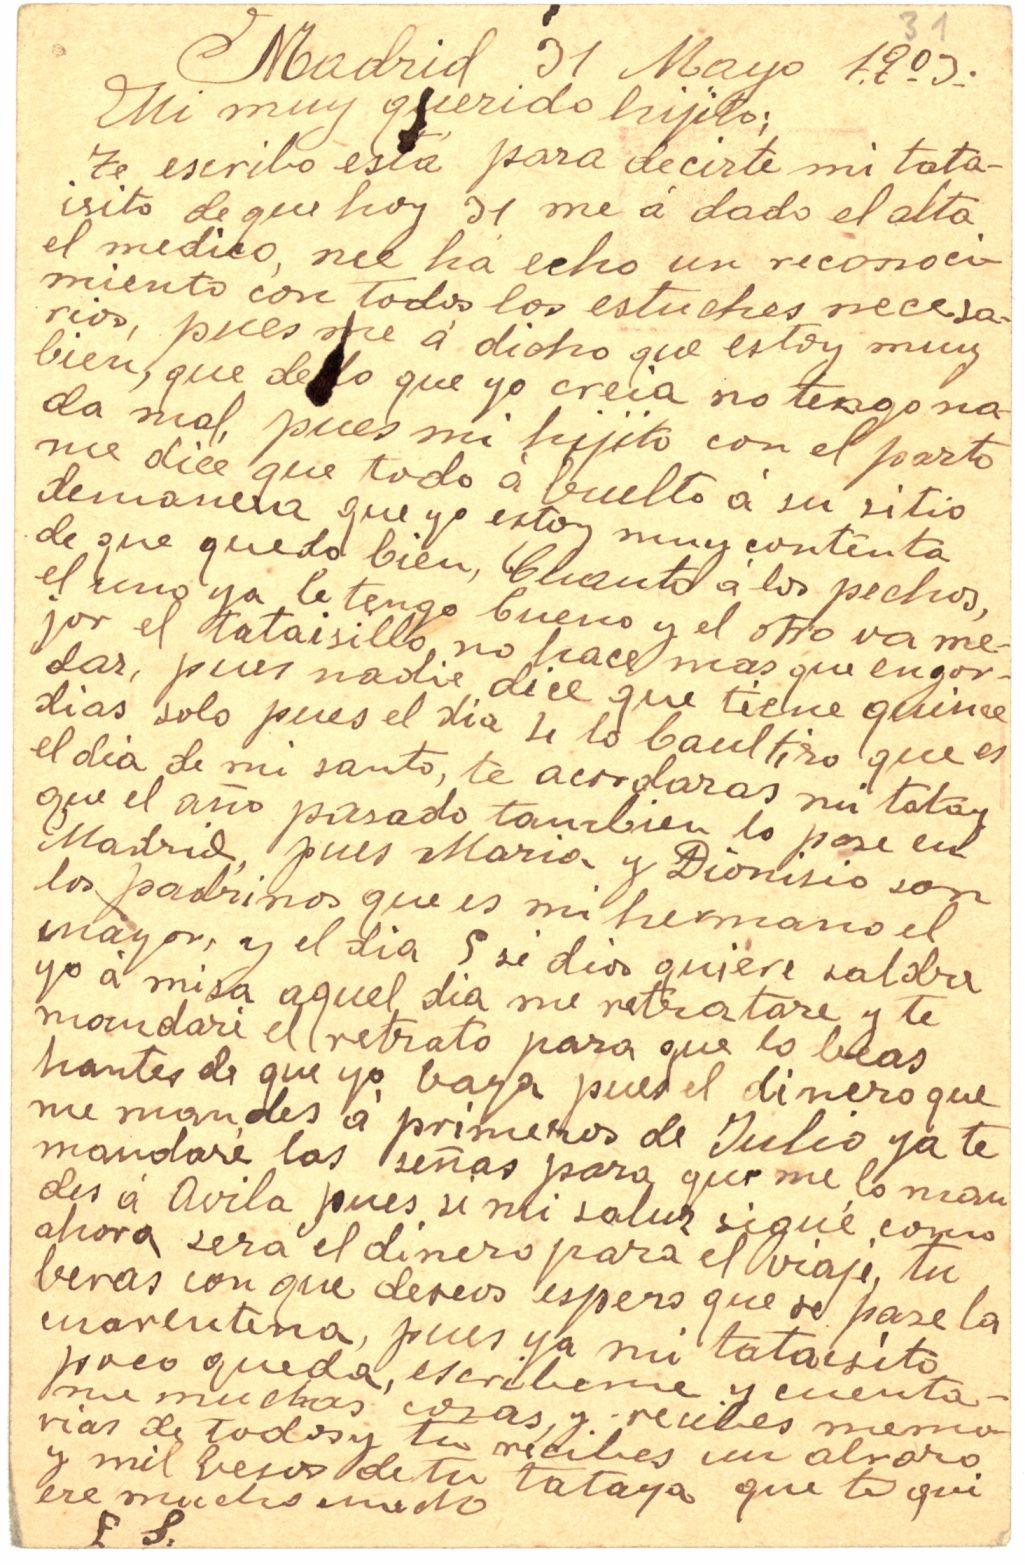 31
Madrid 31 Mayo 1903.
Mi muy querido hijito;
Te escribo esta para decirte mi tata-
isito de que hoy 31 me á dado el alta
el medico, me ha echo un reconoci-
miento con todos los estuches necesa-
rios, pues me á dicho que estoy muy
bien, que de lo que yo creia no tengo na-
da mal, pues mi hijito con el parto
me dice que todo á buelto á su sitio
demanera que yo estoy muy contenta
de que quedo bien, Cuanto á los pechos,
el uno ya le tengo bueno y el otro va me-
jor el tataisillo no hace mas que engor-
dar, pues nadie dice que tiene quince
dias solo pues el dia se lo bautizo que es
el dia de mi santo, te acordaras mi tatay
que el año pasado tambien lo pase en
Madrid, pues Maria y Dionisio son
los padrinos que es mi hermano el
mayor, y el dia 5 si dios quiere saldre
yo á misa aquel dia me retratare y te
mandare el retrato para que lo beas
hantes de que yo baya pues el dinero que
me mandes á primeros de Julio ya te
mandaré las señas para que me lo man
des á Avila pues si mi salud sigue como
ahora sera el dinero para el viaje, tu
beras con que deseos espero que se pase la
cuarentena, pues ya mi tataisito
poco queda, escribeme y cuenta-
me muchas cosas, y recibes memo
rias de todos y tu recibes un abrazo
y mil besos de tu tataya que te qui
ere mucho mucho
E S.